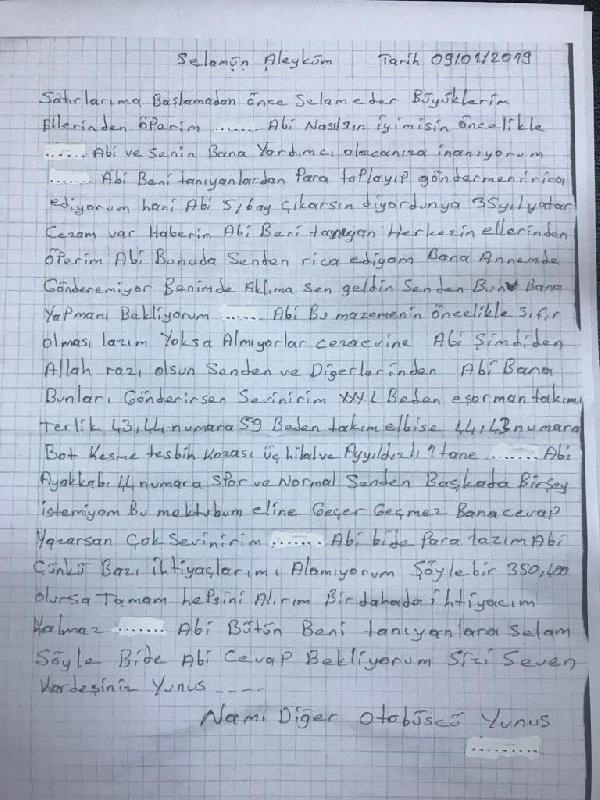 Selamün Aleyküm Tarih 09/01/2019
Satırlarıma Başlamadan önce Selam eder Büyüklerim
Ellerinden öperim ....... Abi Nasılsın iyimisin öncelikle
...... Abi ve Senin Bana Yardımcı olacanıza inanıyorum
...... Abi Beni tanıyanlardan Para toplayıp göndermeni rica
ediyorum hani Abi 5,6ay Çıkarsın diyordunya 35yılyatar
Cezam var Haberin Abi Beni tanıyan Herkezin ellerinden
öperim Abi Bunuda Senden rica ediyom Bana Annemde
Gönderemiyor Benimde Aklıma Sen geldin Senden Bunu Bana
Yapmanı Bekliyorum ....... Abi Bu mazemenin öncelikle Sıfır
olması lazım Yoksa Almıyorlar cezaevine Abi Şimdiden
Allah razı olsun Senden ve Diğerlerinden Abi Bana
Bunları Gönderirsen Sevinirim XXXL Beden eşorman takımı
Terlik 43,44 numara 59 Beden takım elbise 44,43 numara
Bot Kesme tesbih Kozası üç hilal ve Ayyıldızlı 1 tane ........ Abi
Ayakkabı 44 numara Spor ve Normal Senden Başkada Birşey
istemiyom Bu mektubum eline Geçer Geçmez Bana cevap
Yazarsan Çok Sevinirim ....... Abi bide Para lazım Abi
Çünkü Bazı ihtiyaçlarımı Alamıyorum Şöyle bir 350,400
olursa Tamam hepsini Alırım Bir dahada ihtiyacım
kalmaz ....... Abi Bütün Beni tanıyanlara Selam
Söyle Bide Abi Cevap Bekliyorum Sizi Seven
Kardeşiniz Yunus ....
Namı Diğer Otobüscü Yunus
..........